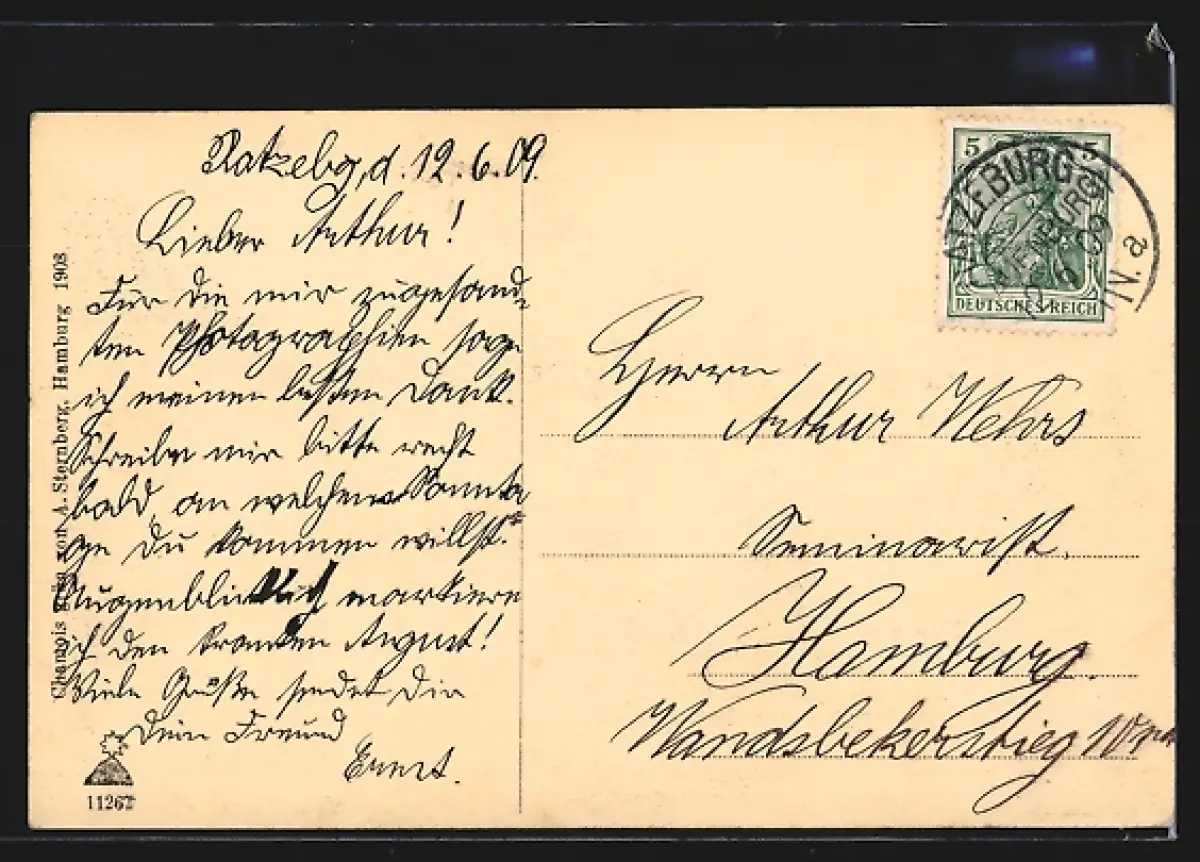 Ratzebg, d. 12.6.09.
Lieber Arthur!
Für die mir zugesand-
ten Photographien sage
ich meinen besten Dank.
Schreibe mir bitte recht
bald, an welchem Sonnta
ge Du kommen willst.
Augenblicklich markiere
ich den kranken August!
Viele Grüße sendet Dir
Dein Freund
Ernst.
Chamois von A. Sternberg, Hamburg 1908
11267
5 5
DEUTSCHES REICH
RATZEBURG
(LAUENBURG)
6 09
N. a
Herrn
Arthur Wehrs
Seminarist.
Hamburg.
Wandsbekerstieg 10